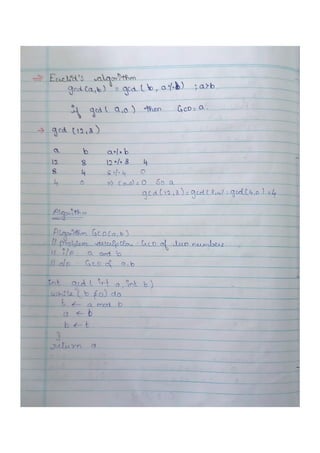 ⇒ Euclid's algorithm
gcd(a,b) = gcd(b, a%b) ; a>b
if gcd(a,0) then GCD=a.
→ gcd(12,8)
a b a%b
12 8 12%8 4
8 4 8%4 0
4 0 ⇒ =0 So a
gcd(12,8)=gcd(8,4)=gcd(4,0)=4
Algorithm
Algorithm GCD(a,b)
// problem description: GCD of two numbers
// i/p a and b
// o/p GCD of a,b
int gcd(int a, int b)
while(b≠0) do
t ← a mod b
a ← b
b ← t
}
return a